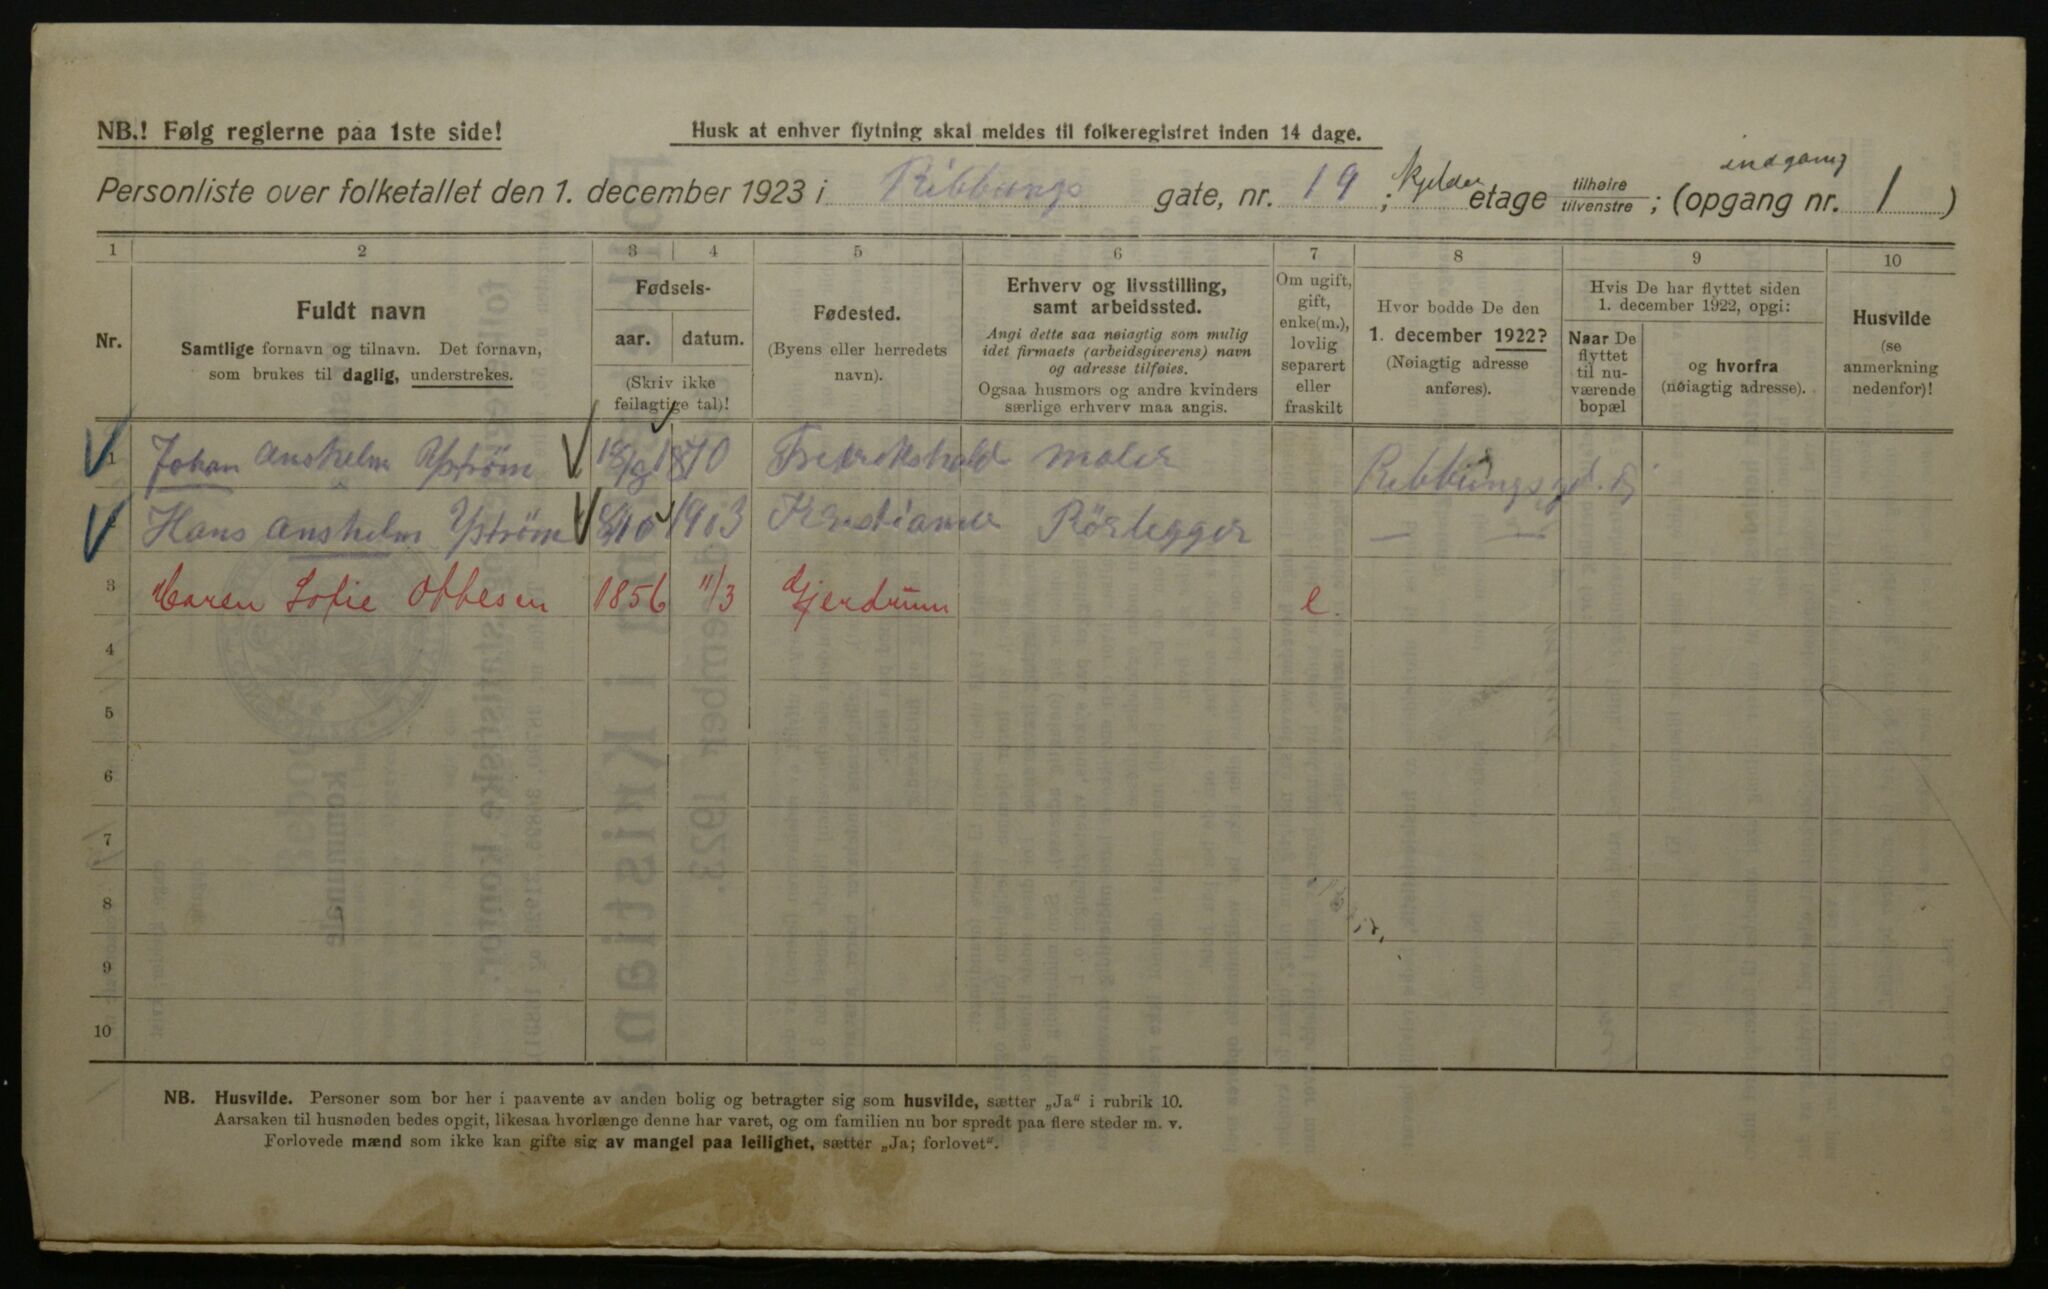 NB.! Følg reglerne paa 1ste side!
Husk at enhver flytning skal meldes til folkeregistret inden 14 dage.
indgang
Personliste over folketallet den 1. december 1923 i Ribbungs gate, nr. 19 ; kjelder etage tilhøire tilvenstre ; (opgang nr. 1 )
1 2 3 4 5 6 7 8 9 10
Nr.
Fuldt navn
Samtlige fornavn og tilnavn. Det fornavn,
som brukes til daglig, understrekes.
Fødsels-
aar. datum.
(Skriv ikke
feilagtige tal)!
Fødested.
(Byens eller herredets
navn).
Erhverv og livsstilling,
samt arbeidssted.
Angi dette saa nøiagtig som mulig
idet firmaets (arbeidsgiverens) navn
og adresse tilføies.
Ogsaa husmors og andre kvinders
særlige erhverv maa angis.
Om ugift,
gift,
enke(m.),
lovlig
separert
eller
fraskilt
Hvor bodde De den
1. december 1922?
(Nøiagtig adresse
anføres).
Hvis De har flyttet siden
1. december 1922, opgi:
Naar De
flyttet
til nu-
værende
bopæl
og hvorfra
(nøiagtig adresse).
Husvilde
(se
anmerkning
nedenfor)!
1 Johan Anshelm Yström 1870 Fredrikshald maler Ribbungsgd.
Hans Anshelm Yström 1903 Rörlegger — —
3 Maren Sofie Obbesen 1856 11/3 Gjerdrum e.
4
5
6
7
8
9
10
NB. Husvilde. Personer som bor her i paavente av anden bolig og betragter sig som husvilde, sætter „Ja“ i rubrik 10.
Aarsaken til husnøden bedes opgit, likesaa hvorlænge denne har varet, og om familien nu bor spredt paa flere steder m. v.
Forlovede mænd som ikke kan gifte sig av mangel paa leilighet, sætter „Ja; forlovet“.